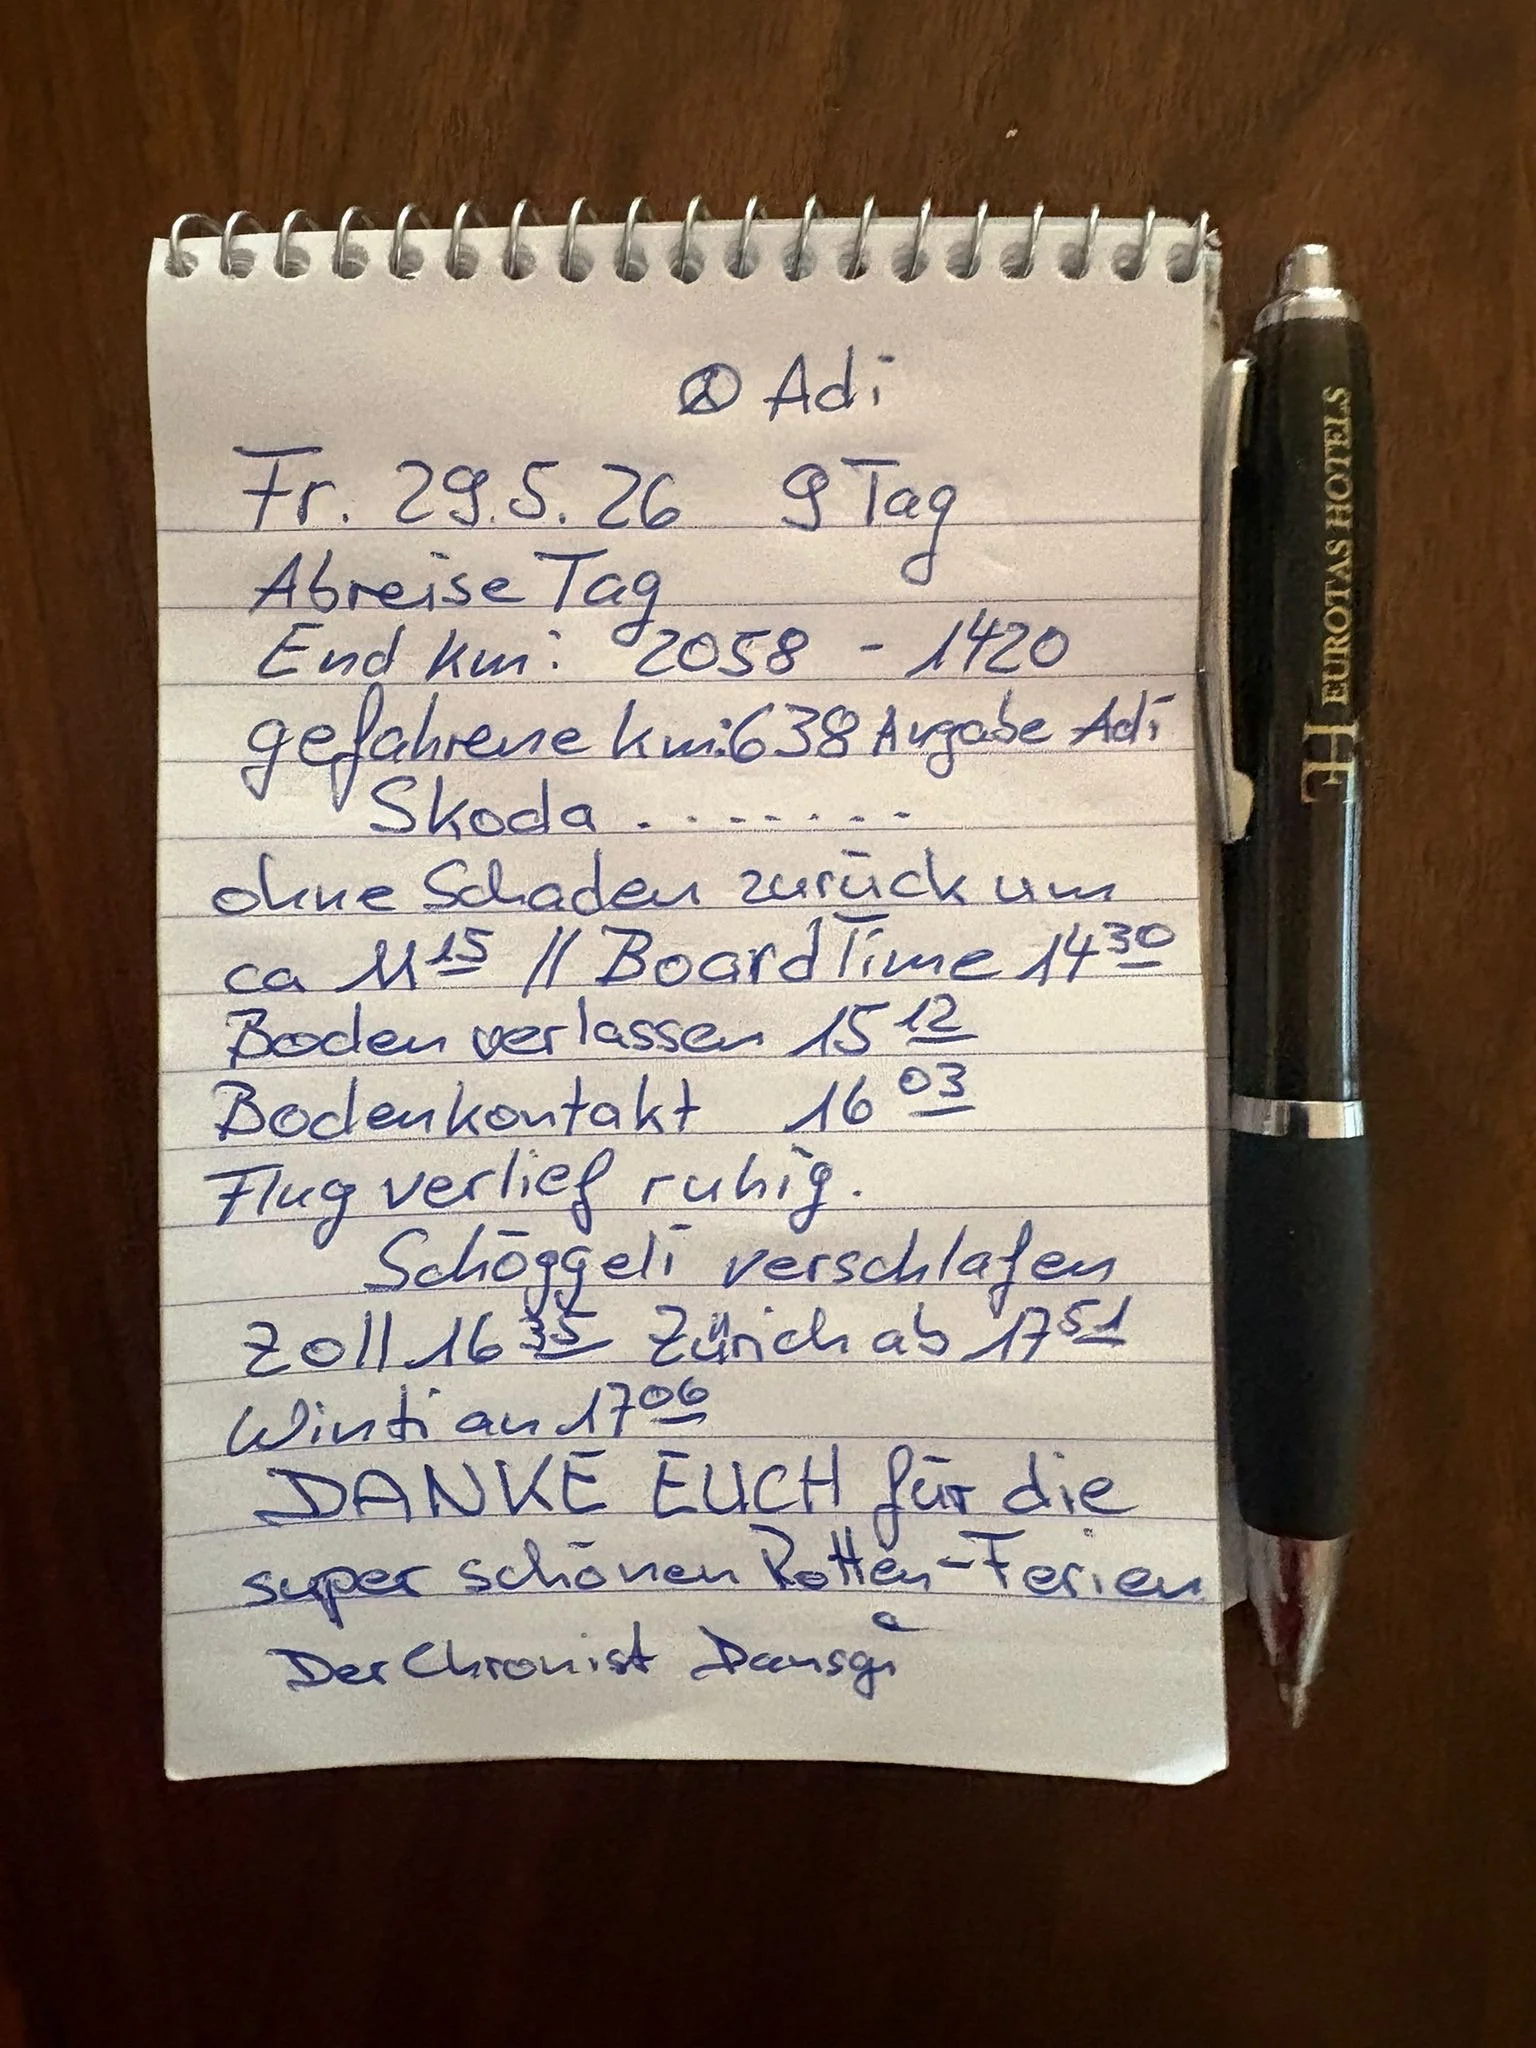 Adi
Fr. 29.5.26 9 Tag
Abreise Tag
End km: 2058 - 1420
gefahrene km: 638 Angabe Adi
Skoda ........
ohne Schaden zurück um
ca 11 15 // BoardTime 14 30
Boden verlassen 15 12
Bodenkontakt 16 03
Flug verlief ruhig.
Schöggeli verschlafen
Zoll 16 35 Zürich ab 17 51
Winti an 17 06
DANKE EUCH für die
super schönen Rotten-Ferien
Der Chronist
EUROTAS HOTELS